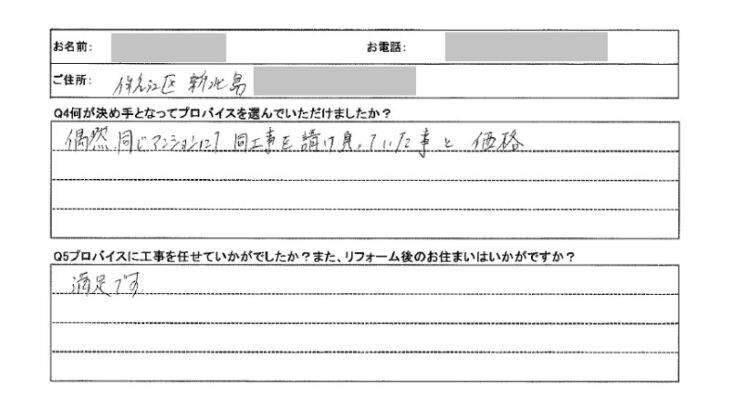 お名前: お電話:
ご住所: 住之江区 新北島
Q4何が決め手となってプロバイスを選んでいただけましたか？
偶然、同じマンションにて同工事を請け負っていた事と価格
Q5プロバイスに工事を任せていかがでしたか？また、リフォーム後のお住まいはいかがですか？
満足です